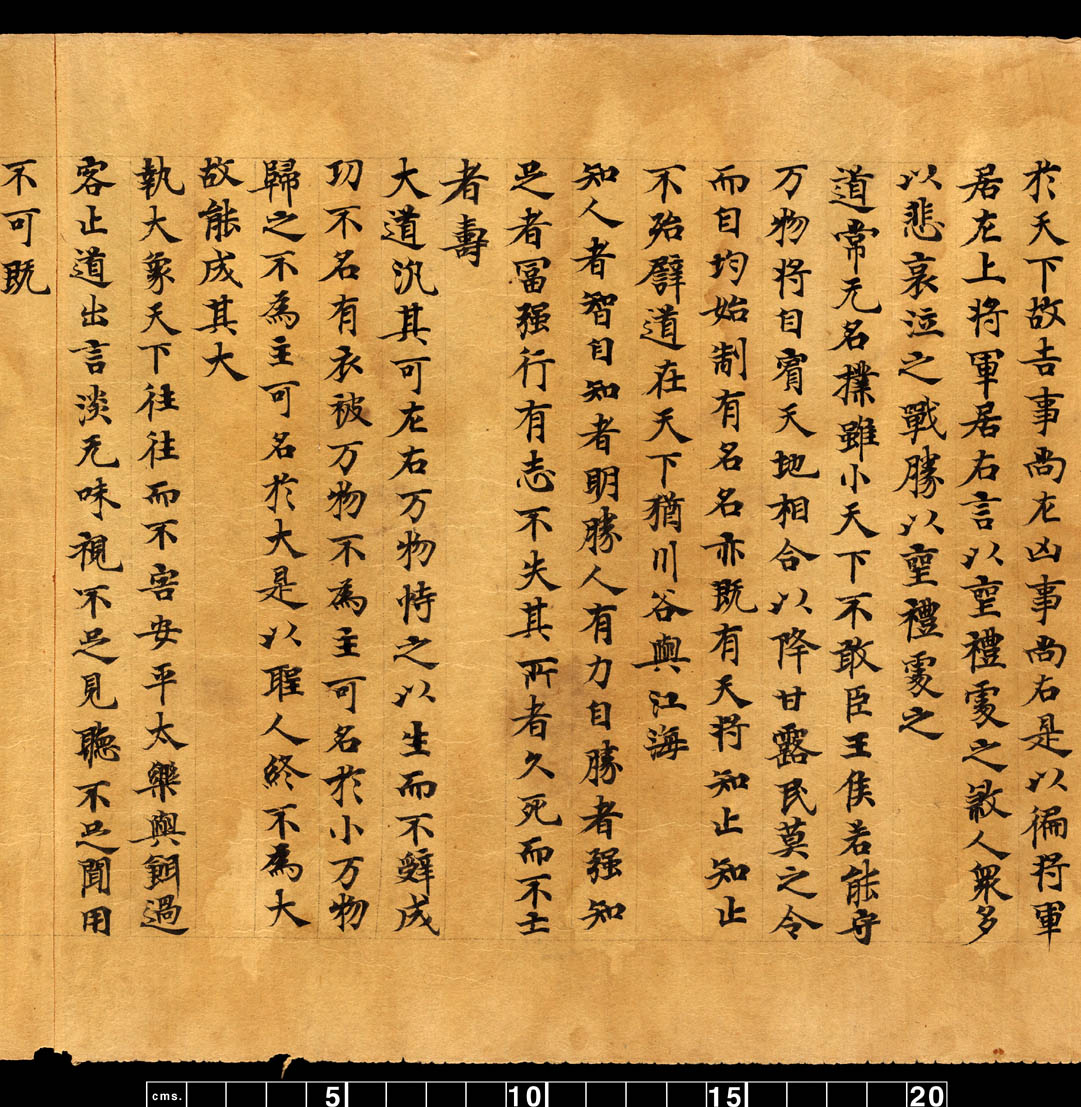 於天下故吉事尚左凶事尚右是以偏将軍
居左上将軍居右言以喪禮處之煞人衆多
以悲哀泣之戰勝以喪禮處之
道常无名樸雖小天下不敢臣王侯若能守
万物将自賓天地相合以降甘露民莫之令
而自均始制有名名亦既有天将知止知止
不殆譬道在天下猶川谷與江海
知人者智自知者明勝人有力自勝者强知
足者冨强行有志不失其所者久死而不亡
者壽
大道汎其可左右万物恃之以生而不辭成
功不名有衣被万物不為主可名於小万物
歸之不為主可名於大是以聖人終不為大
故能成其大
執大象天下往往而不害安平太樂與餌過
客止道出言淡无味視不足見聽不足聞用
不可既
cms. 5 10 15 20